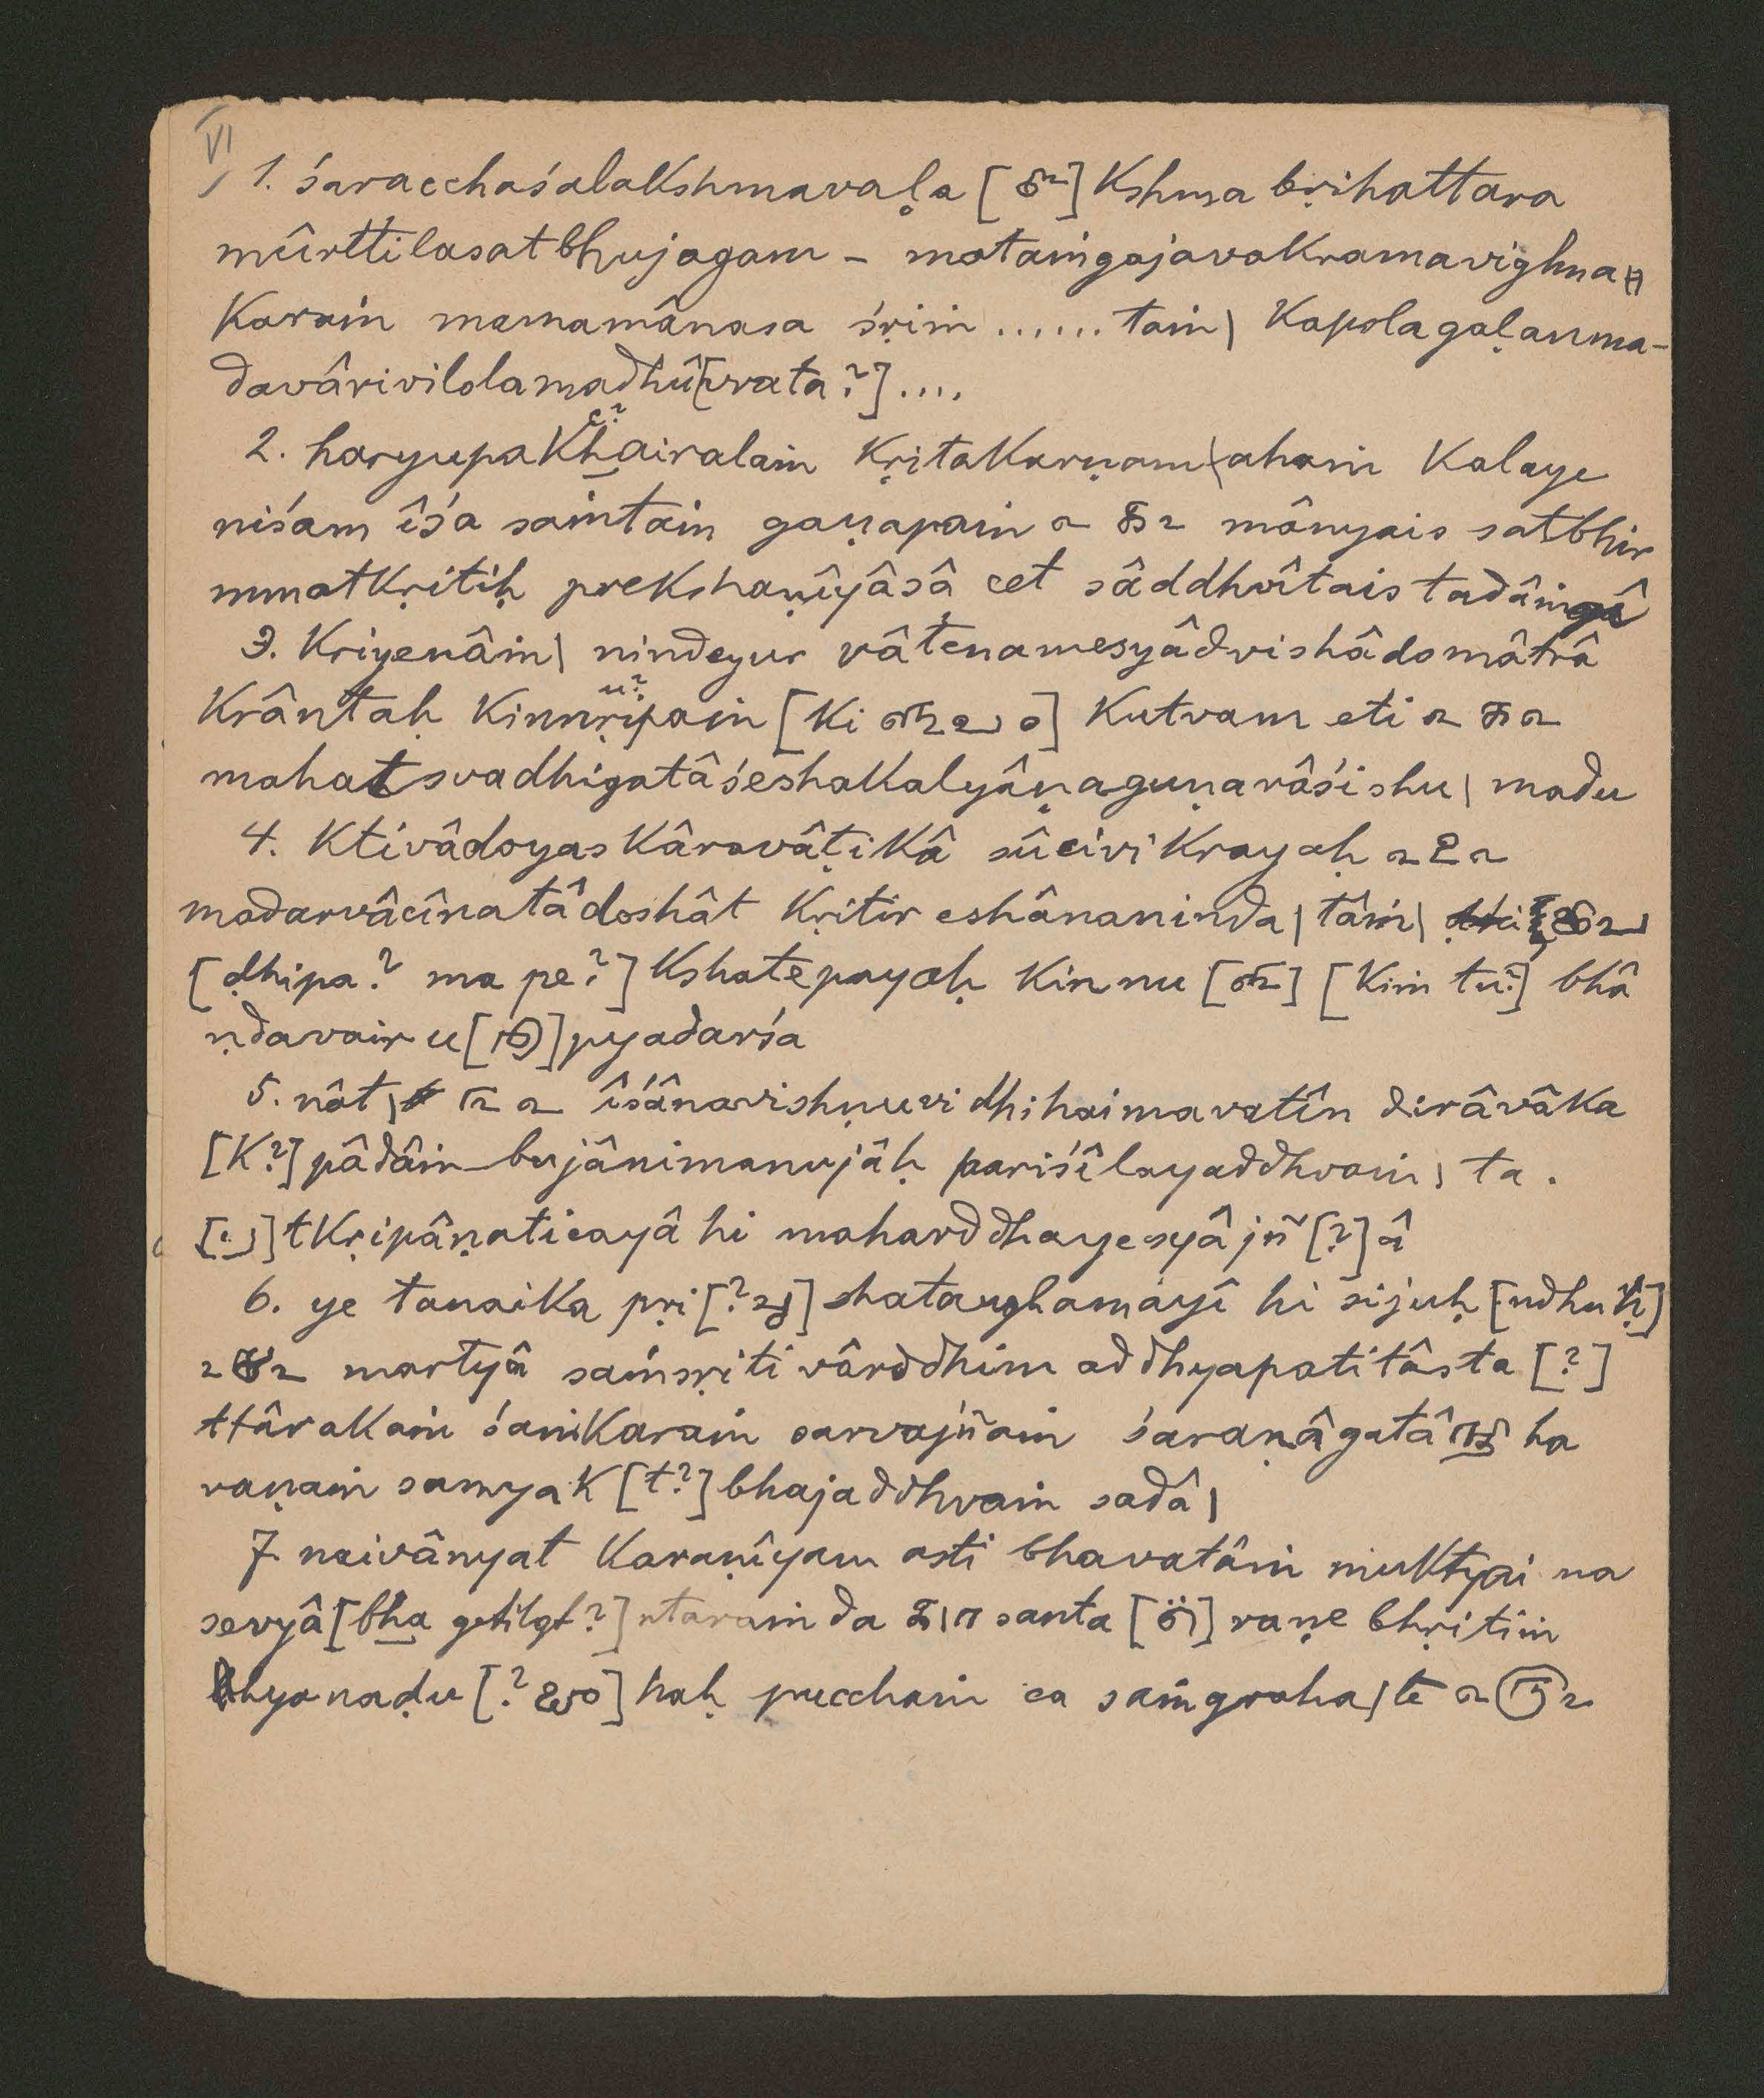 VI
1. śaracchaśalakshmavaḷa [ ] kshma bṛihattara
mûrttilasatbhujagam - mataṁgajavakramavighna
karaṁ mamamânasa śṛiṁ ...... taṁ| kapolagaḷanma-
davârivilolamadhû[vrata?] ....
c?
2. haryupakhairalaṁ kṛitakarṇam|ahaṁ kalaye
niśam îśa saṁtaṁ gaṇapaṁ mânyais satbhir
mmatkṛitiḥ prekshaṇîyâsâ cet sâddhvîtais tadâṁgî
3. kriyenâṁ| nindeyur vâṭenamesyâdvishâdomâtrâ
u?
krântaḥ kinnṛipaṁ [ki ] kutvam eti
mahatsvadhigatâśeshakalyâṇaguṇarâśishu| madu
4. ktivâdoyas kâravâṭikâ sûcivikrayaḥ
madarvâcînatâdoshât kṛitir eshânaninda|tâṁ|
[ḍhipa? ma pe?] kshatepayaḥ kinnu [ ] [kiṁ tu?] bhâ
ṇdavair u[ ]pyadarśa
5. nât| îśânavishṇuvidhihaimavatîn dirâvâka
[k?] pâdâṁbujânimanujâḥ pariśîlayaddhvaṁ| ta.
[ ]tkṛipâṇaticayâ hi maharddhayesyâjñ [?] â
6. ye tanaika pṛi[? ] shataughamâyî hi sijuḥ [ndhuḥ]
martyâ saṁsṛiti vârddhim addhyapatitâsta [?]
ttârakaṁ śaṁkaraṁ sarvajñaṁ śaraṇâgatâ ha
raṇaṁ samyak [t?] bhajaddhvaṁ sadâ|
7. naivânyat karaṇîyam asti bhavatâṁ muktyai na
sevyâ [bha getilgt?] ntaraṁ da santa [ ] raṇe bhṛitiṁ
hyanaḍu [? ] haḥ pucchaṁ ca saṁgraha|te